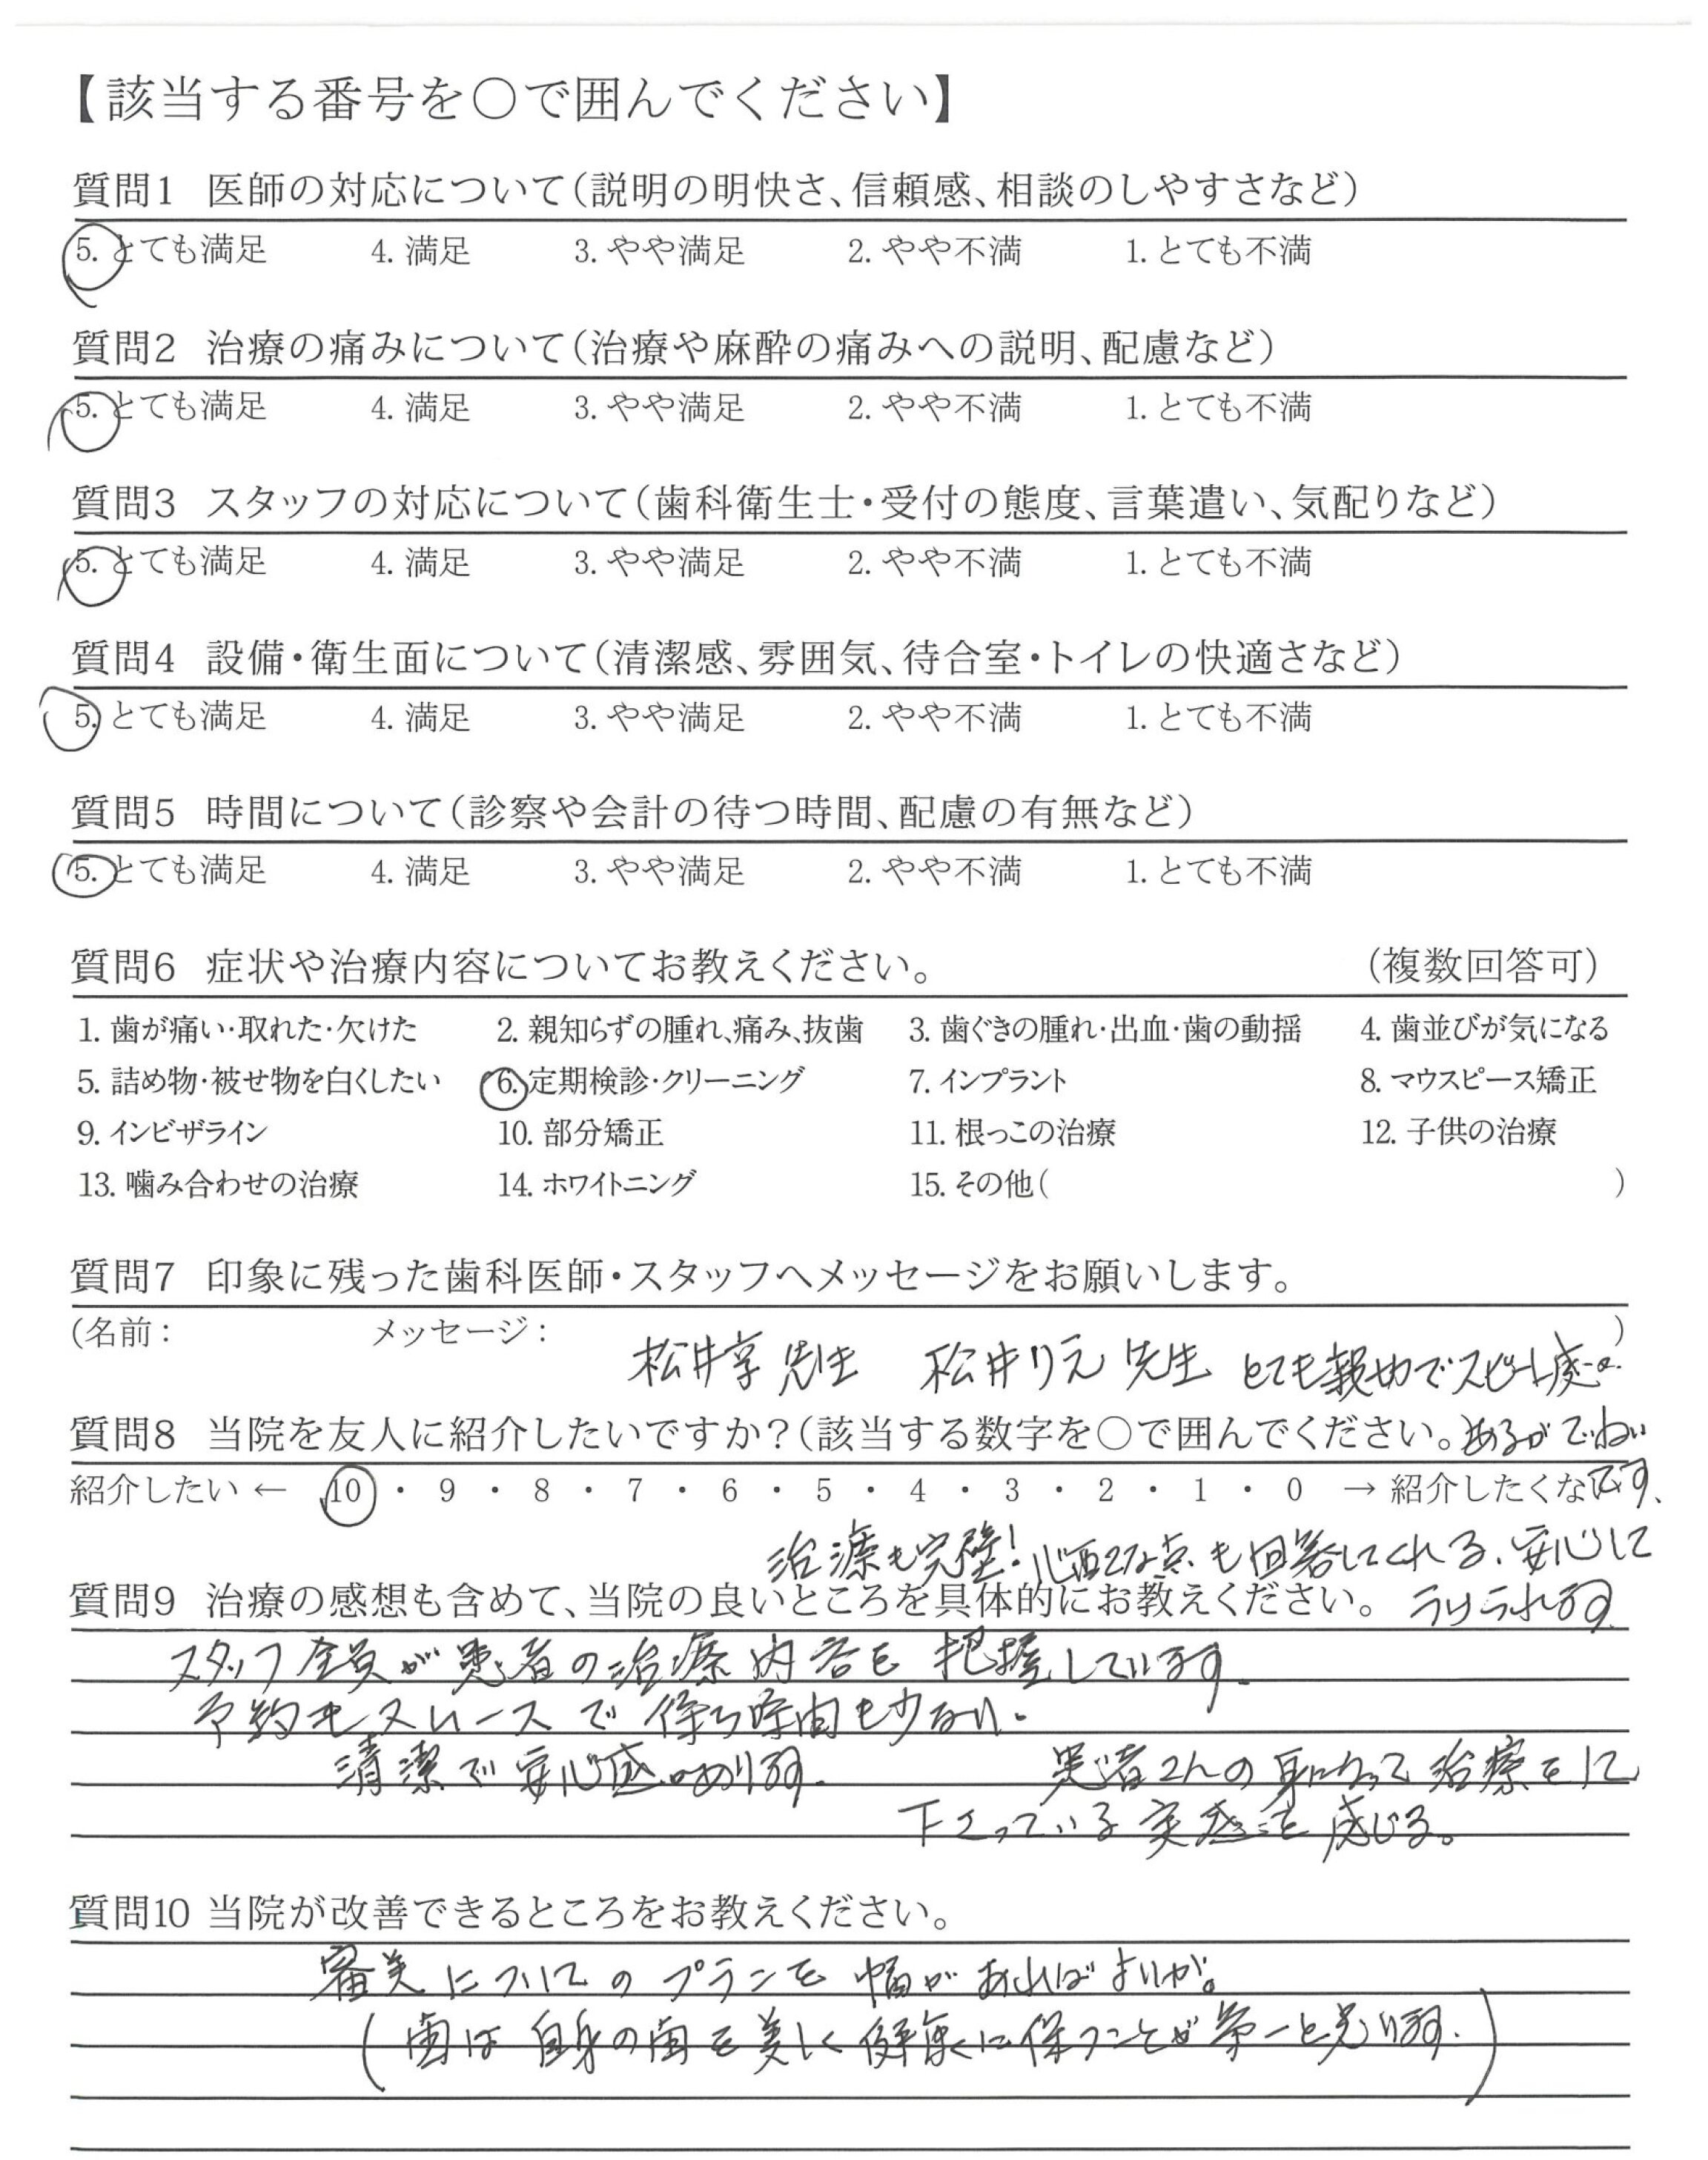 【該当する番号を〇で囲んでください】
質問1 医師の対応について(説明の明快さ、信頼感、相談のしやすさなど)
5. とても満足 4. 満足 3. やや満足 2. やや不満 1. とても不満
質問2 治療の痛みについて(治療や麻酔の痛みへの説明、配慮など)
5. とても満足 4. 満足 3. やや満足 2. やや不満 1. とても不満
質問3 スタッフの対応について(歯科衛生士・受付の態度、言葉遣い、気配りなど)
5. とても満足 4. 満足 3. やや満足 2. やや不満 1. とても不満
質問4 設備・衛生面について(清潔感、雰囲気、待合室・トイレの快適さなど)
5. とても満足 4. 満足 3. やや満足 2. やや不満 1. とても不満
質問5 時間について(診察や会計の待つ時間、配慮の有無など)
5. とても満足 4. 満足 3. やや満足 2. やや不満 1. とても不満
質問6 症状や治療内容についてお教えください。 (複数回答可)
1. 歯が痛い・取れた・欠けた 2. 親知らずの腫れ、痛み、抜歯 3. 歯ぐきの腫れ・出血・歯の動揺 4. 歯並びが気になる
5. 詰め物・被せ物を白くしたい 6. 定期検診・クリーニング 7. インプラント 8. マウスピース矯正
9. インビザライン 10. 部分矯正 11. 根っこの治療 12. 子供の治療
13. 噛み合わせの治療 14. ホワイトニング 15. その他( )
質問7 印象に残った歯科医師・スタッフへメッセージをお願いします。
(名前: メッセージ: )
松井享先生 松井りえ先生 とても親切でスピード
質問8 当院を友人に紹介したいですか?(該当する数字を〇で囲んでください。
あるがていねい
紹介したい ← 10 ・ 9 ・ 8 ・ 7 ・ 6 ・ 5 ・ 4 ・ 3 ・ 2 ・ 1 ・ 0 → 紹介したくな
です、
治療も完璧! 心配な点も回答してくれる、安心して
質問9 治療の感想も含めて、当院の良いところを具体的にお教えください。
うけられます
スタッフ全員が患者の治療内容を把握しています。
予約もスムースで待ち時間も少ない。
清潔で安心感あります。 患者さんの身になって治療をして
下さっている実感を感じる。
質問10 当院が改善できるところをお教えください。
審美についてのプランを幅があればよいが。
(歯は自身の歯を美しく健康に保つことが第一と思います。)